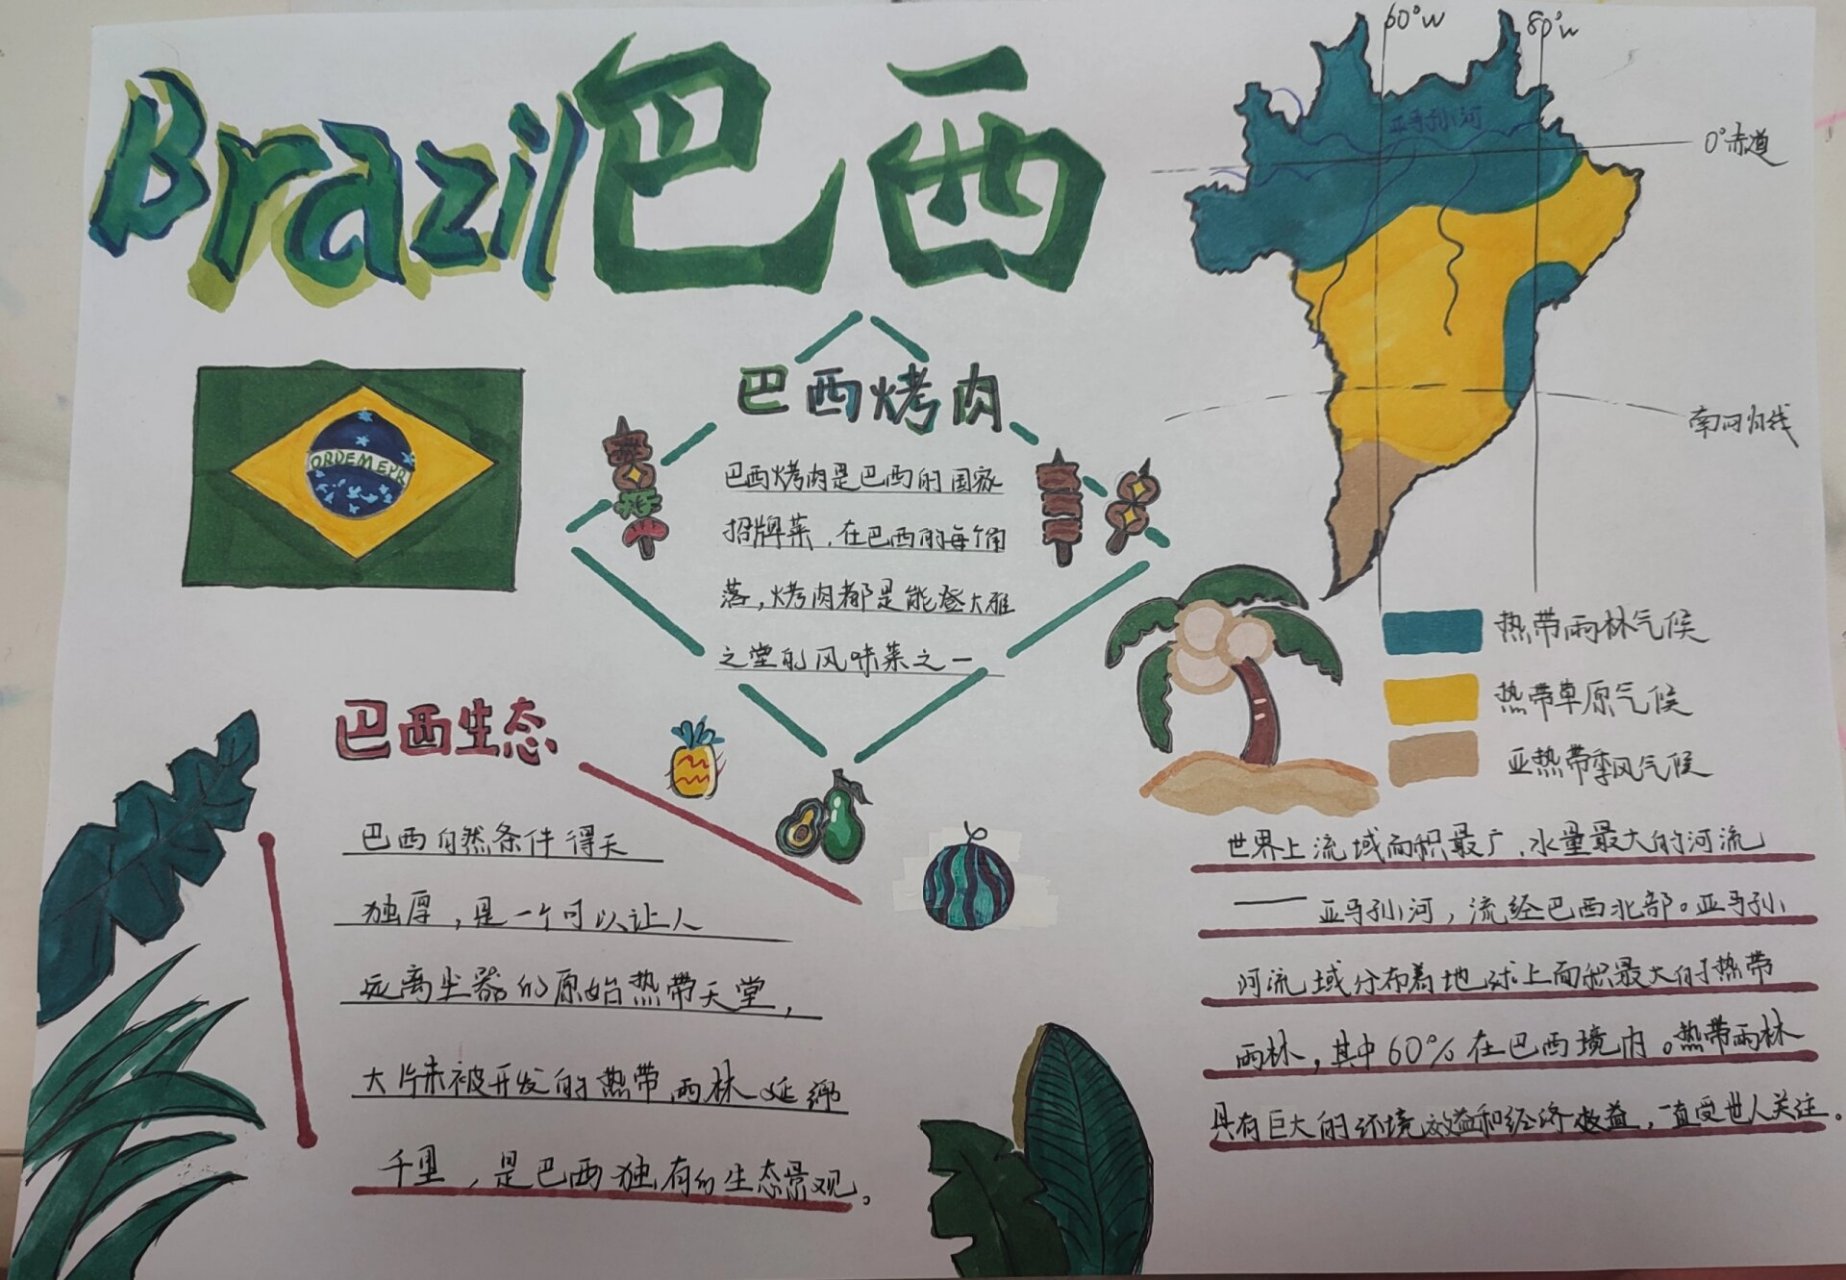 Brazil巴西
60°W
80°W
亚马孙河
0°赤道
南回归线
ORDEM E PR
巴西烤肉
巴西烤肉是巴西的国家
招牌菜，在巴西的每个角
落，烤肉都是能登大雅
之堂的风味菜之一
热带雨林气候
热带草原气候
亚热带季风气候
巴西生态
巴西自然条件得天
独厚，是一个可以让人
远离尘嚣的原始热带天堂，
大片未被开发的热带雨林延绵
千里，是巴西独有的生态景观。
世界上流域面积最广，水量最大的河流
——亚马孙河，流经巴西北部。亚马孙
河流域分布着地球上面积最大的热带
雨林，其中60%在巴西境内。热带雨林
具有巨大的环境效益和经济效益，一直受世人关注。